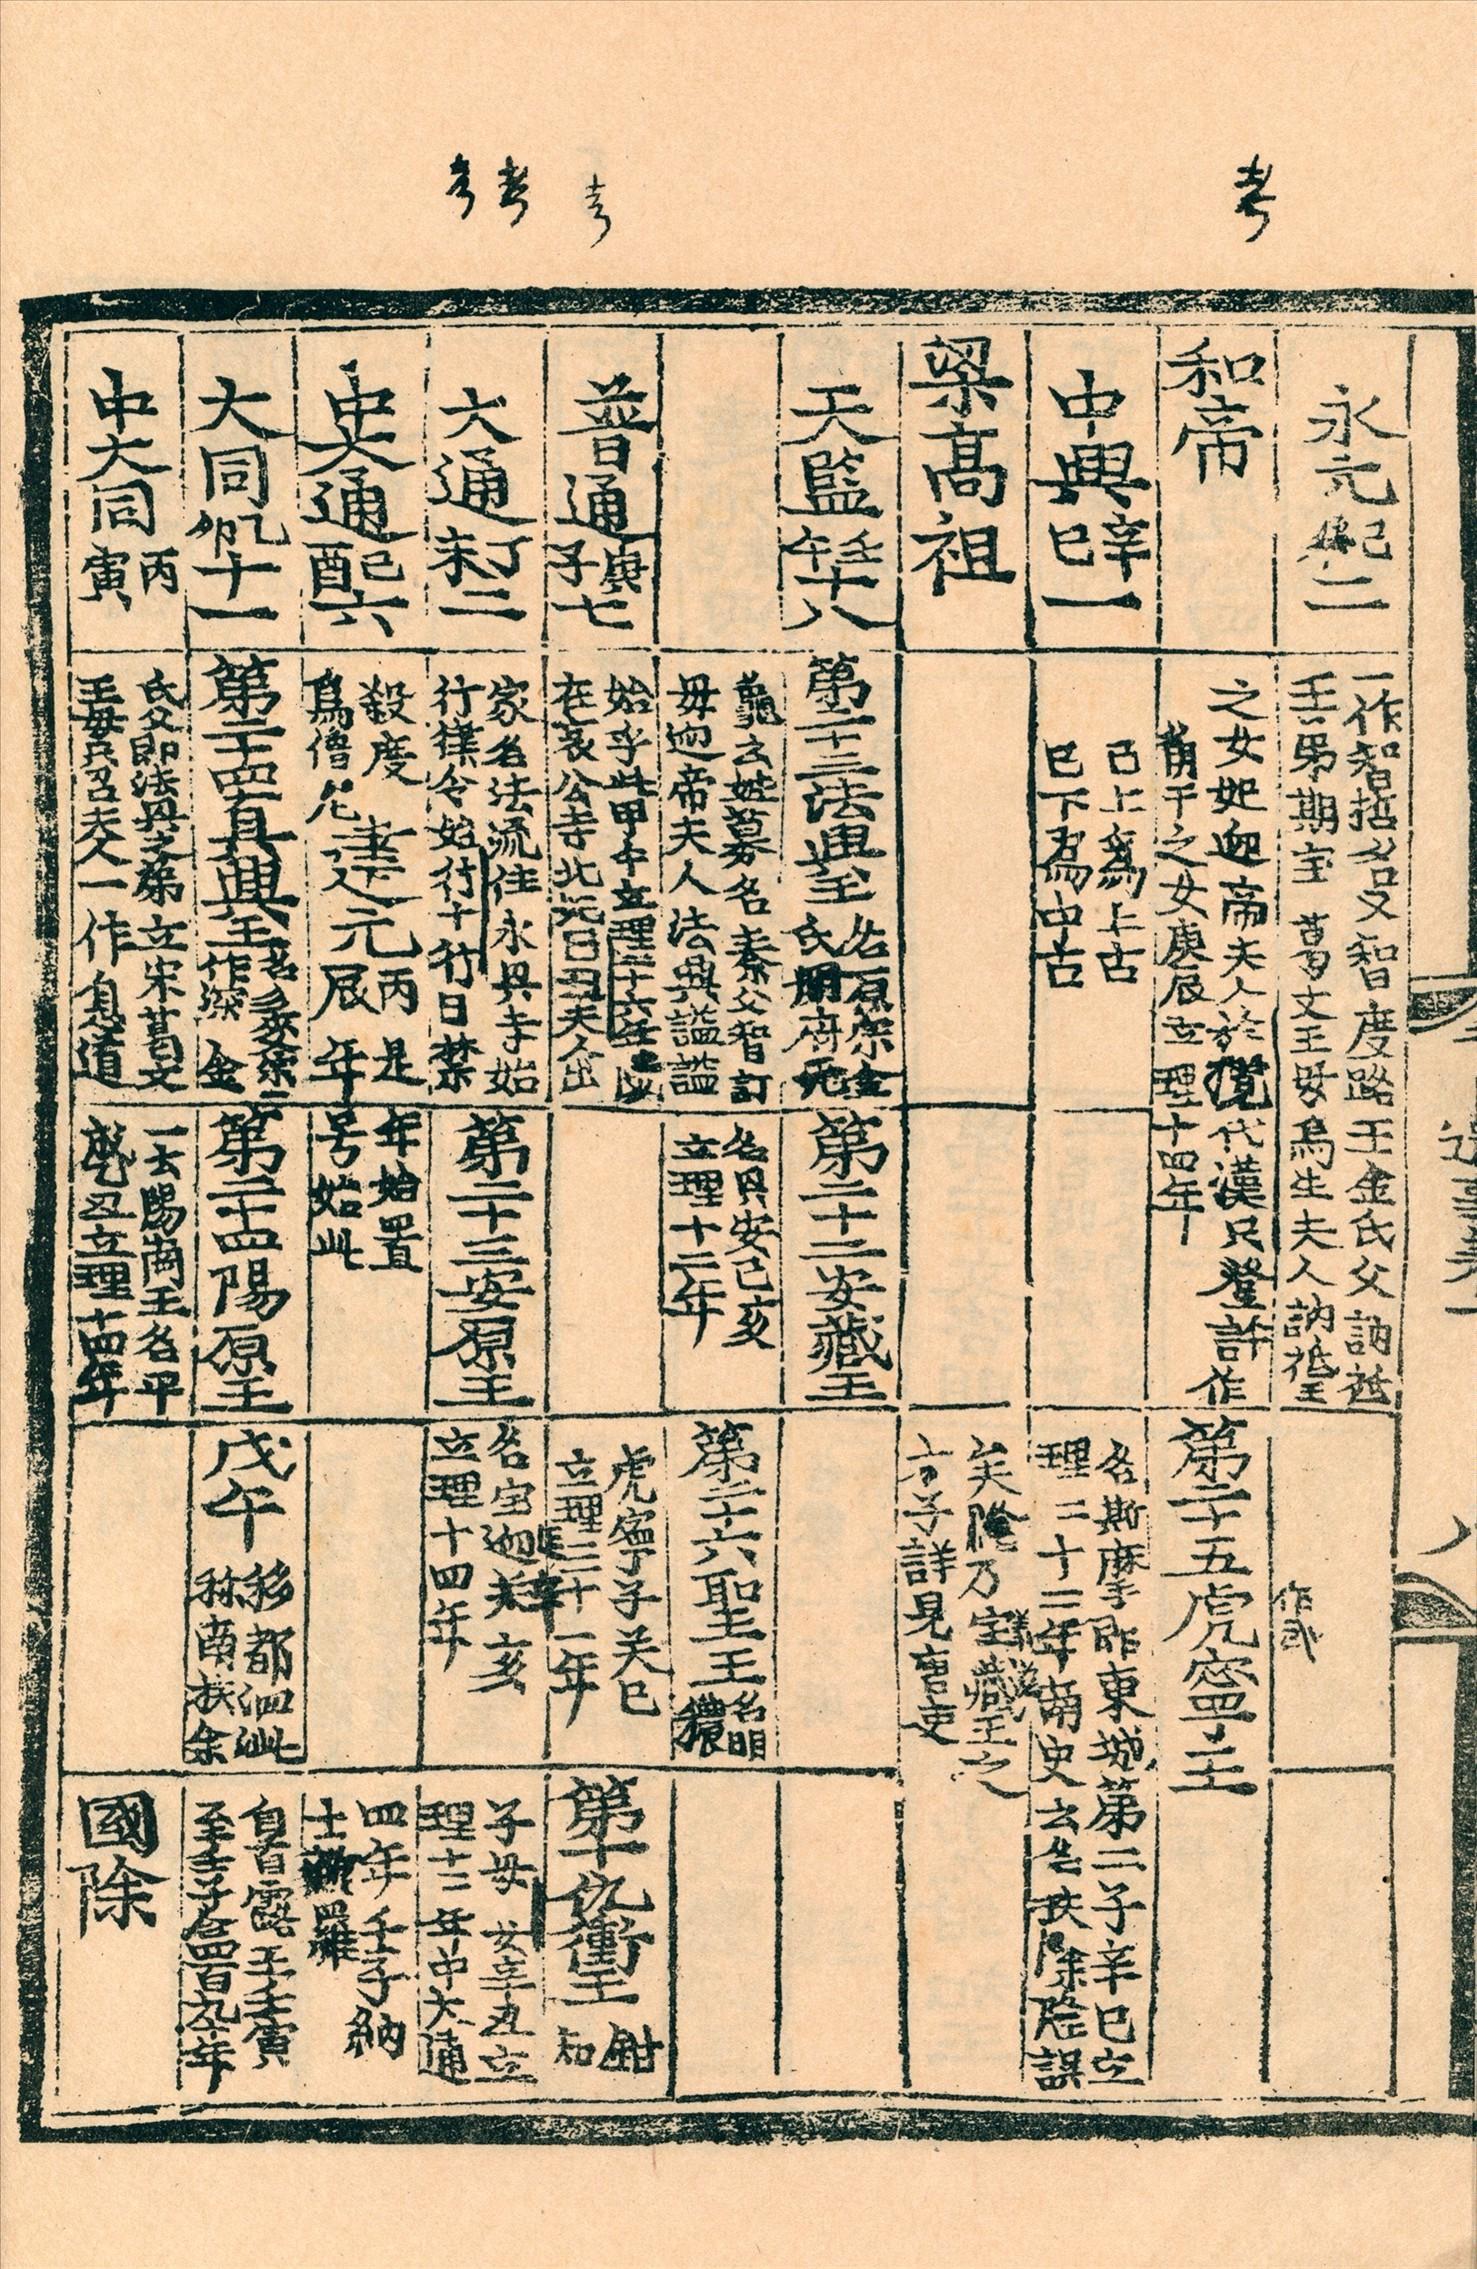 考
考
考
考
永元己卯二
一作智哲老又智度路王金氏父訥祇
王弟期宝葛文王母烏生夫人訥祇王
作武
和帝
之女妃迎帝夫人於攬代漢只登許作
第二十五虎寧王
角干之女庚辰立理十四年
中興辛巳一
已上爲上古
已下爲中古
名斯摩即東城第二子辛巳立
理二十二年南史云名扶餘隆誤
梁高祖
矣隆乃宝藏王之
太子詳見唐史
天監壬午十八
第二十三法興王
名原宗金
氏冊府元
第二十二安藏王
龜云姓募名秦父智訂
母迎帝夫人法興謚謚
名興安己亥
立理十二年
第二十六聖王
名明
襛
普通庚子七
始乎此甲午立理二十六年
在哀公寺北妃日丑夫人出
虎寧子癸巳
立理三十一年
第十仇衝王
鉗
知
大通丁未二
家名法流住永興寺始
行律令始行十行日禁
第二十三安原王
名宝迎
立理十四年
子母女辛丑立
理十二年中大通
中大通己酉六
殺度
爲僧尼
建元
丙辰是年
年始置
号始此
四年壬子納
土新羅
大同乙卯十一
第二十四真興王
名彡麥宗
一作深金
第二十四陽原王
戊午
移都泗沘
称南扶余
自首露王壬寅
至壬子合四百九十年
中大同丙寅
氏父即法興之弟立宗葛文
王母只召夫人一作息道
一云陽崗王名平
成乙丑立理十四年
國除